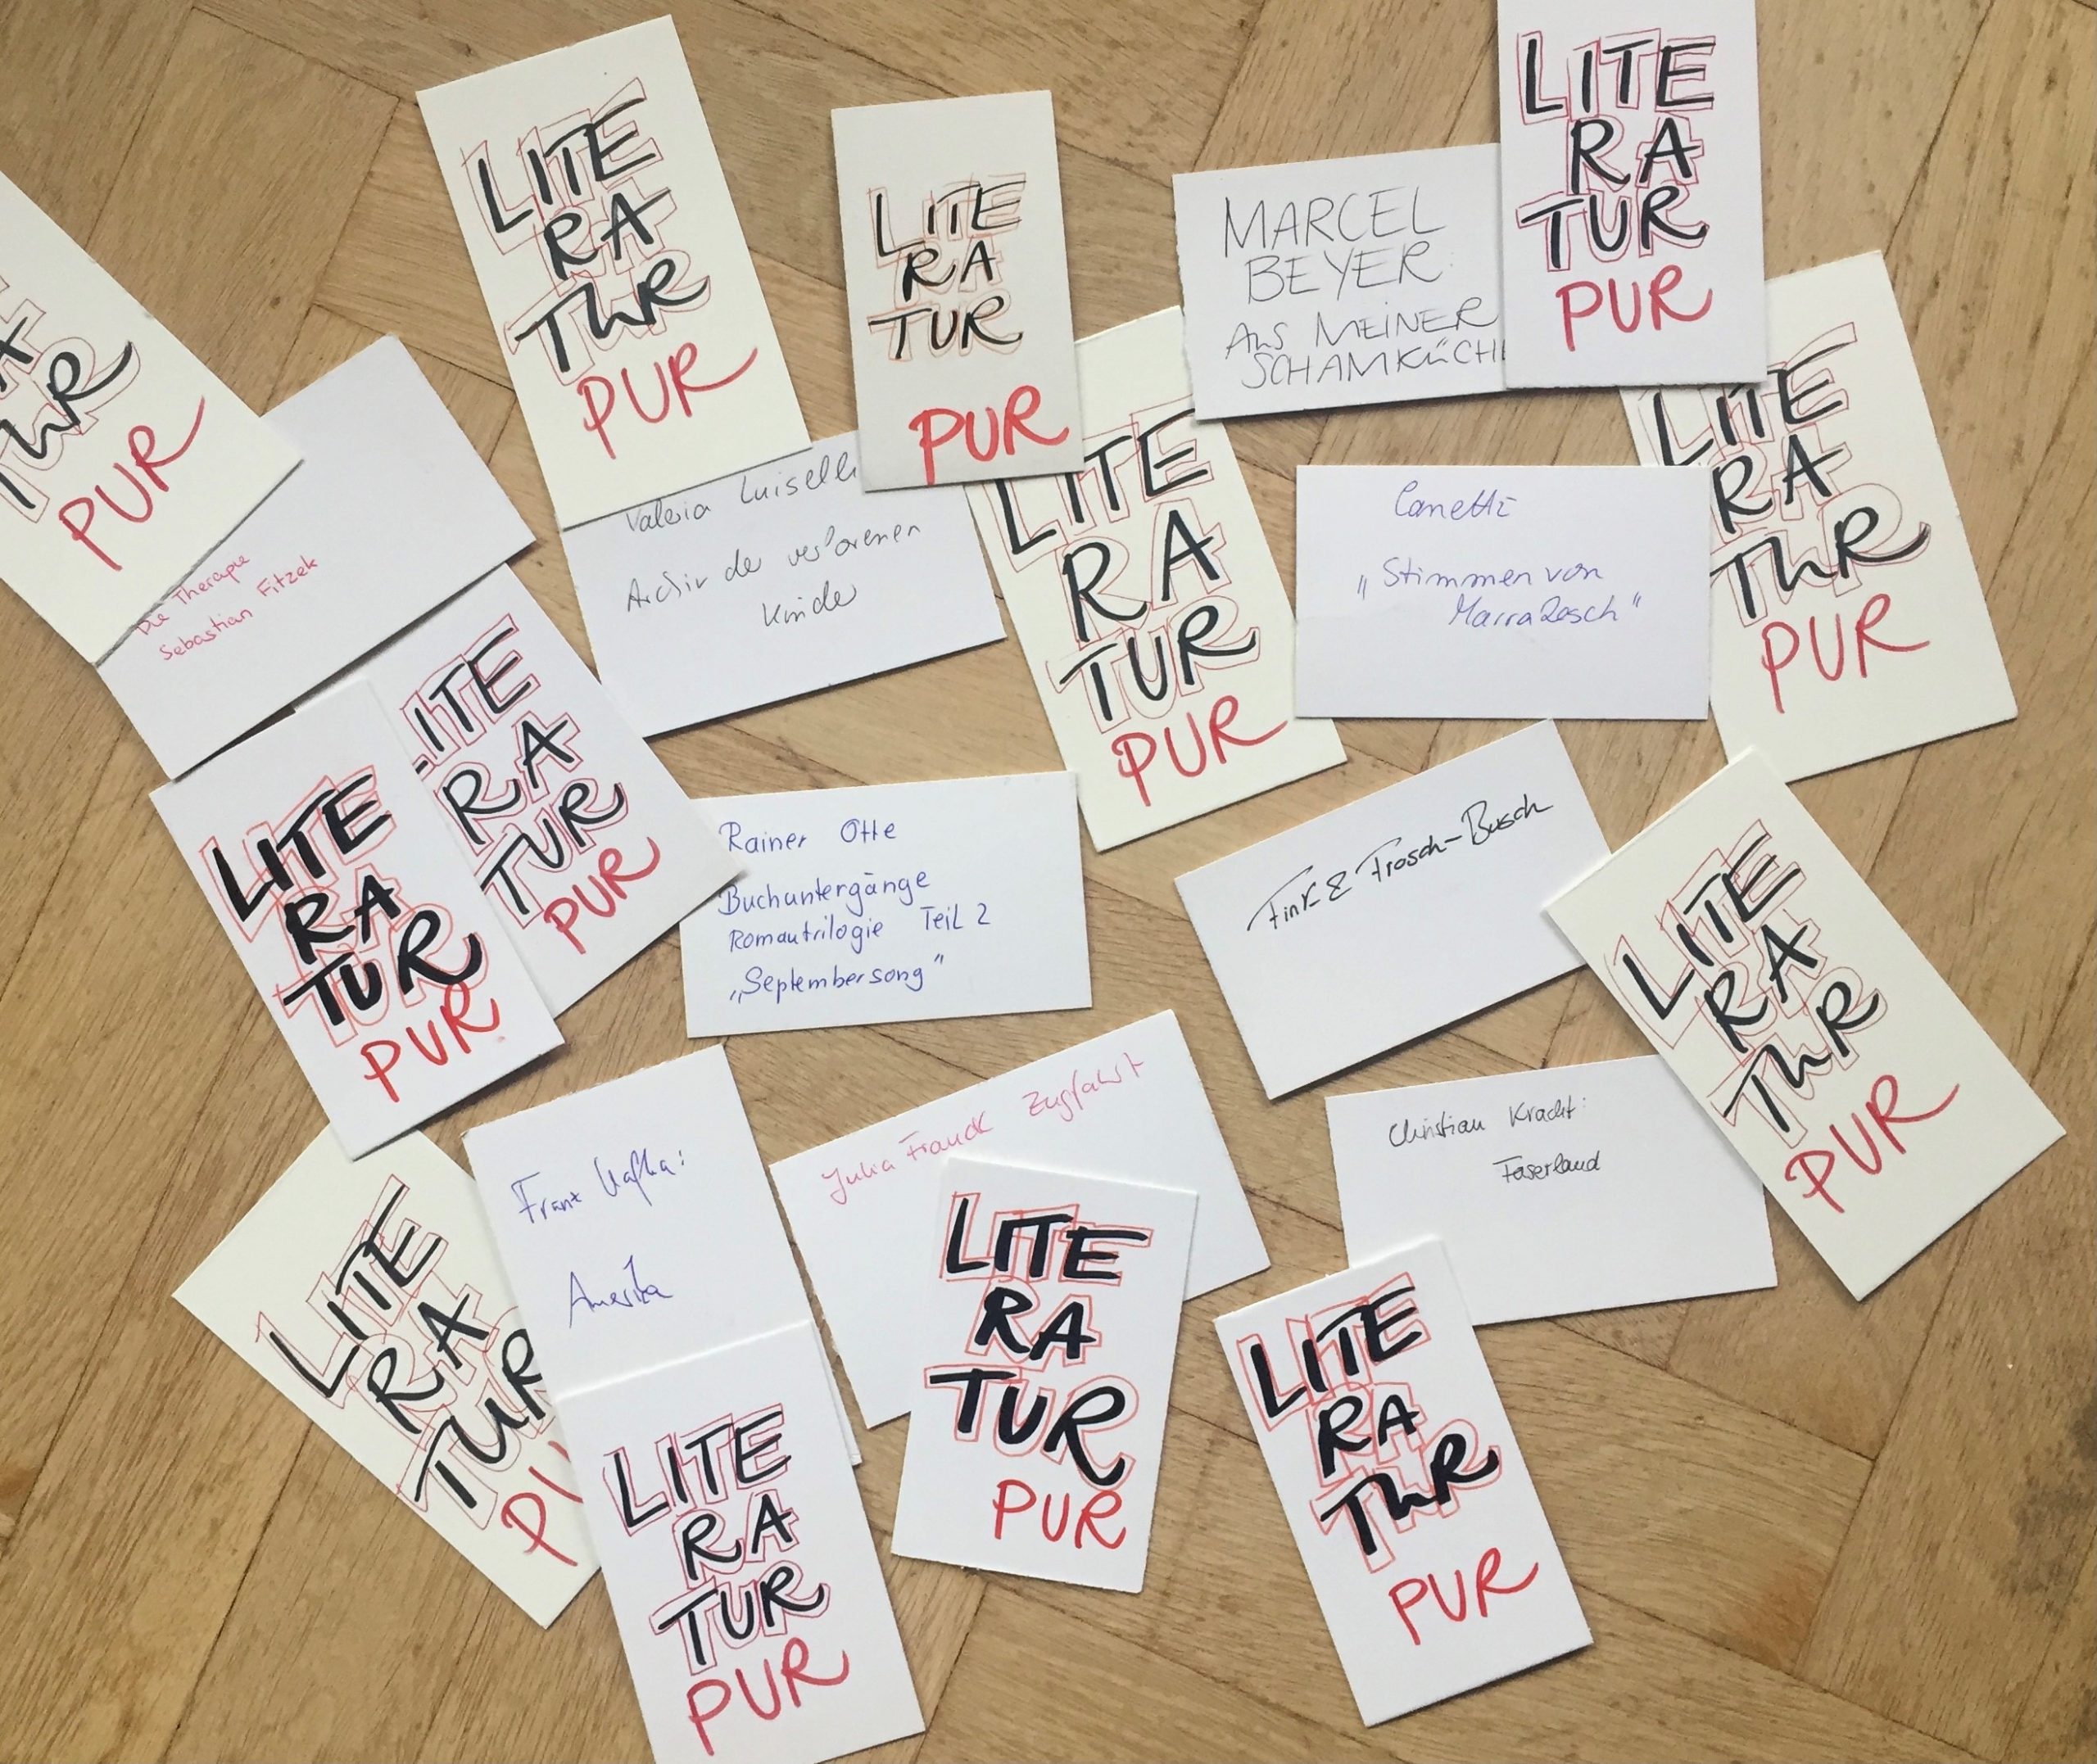 LITE
RA
TUR
PUR
LITE
RA
TUR
PUR
MARCEL
BEYER
AUS MEINER
SCHAMKÜCH
LITE
RA
TUR
PUR
A
TUR
PUR
Die Therapie
Sebastian Fitzek
Valeria Luiselli
Archiv der verlorenen
Kinder
LITE
RA
TUR
PUR
Canetti
„Stimmen von
Marrakesch“
LITE
RA
TUR
PUR
LITE
RA
TUR
PUR
LITE
RA
TUR
PUR
Rainer Otte
Buchuntergänge
Romantrilogie Teil 2
„Septembersong“
Fink & Frosch-Busch
LITE
RA
TUR
PUR
Franz Kafka:
Amerika
Julia Franck Zugfahrt
Christian Kracht:
Faserland
LITE
RA
TUR
PU
LITE
RA
TUR
PUR
LITE
RA
TUR
PUR
LITE
RA
TUR
PUR